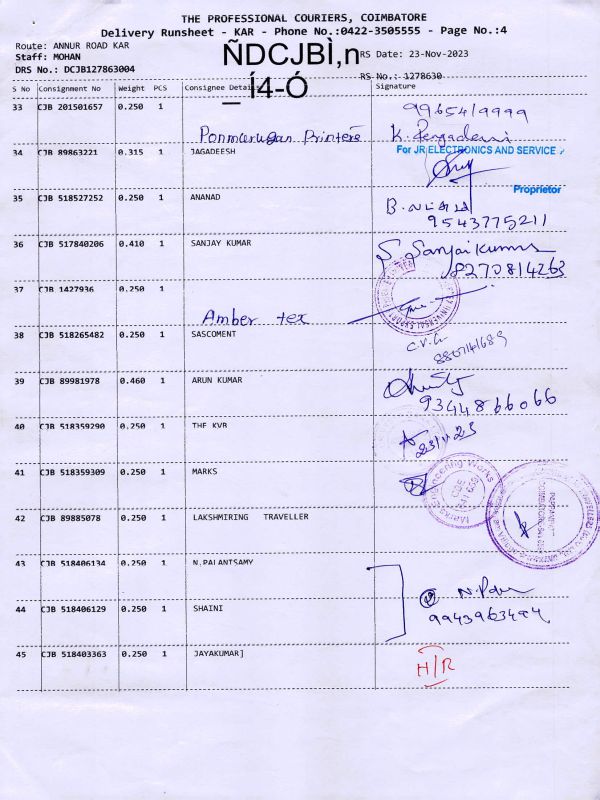 THE PROFESSIONAL COURIERS, COIMBATORE
Delivery Runsheet - KAR - Phone No.:0422-3505555 - Page No.:4
Route: ANNUR ROAD KAR
Staff: MOHAN
ÑDCJBÌ,n
RS Date: 23-Nov-2023
DRS No.: DCJB127863004
_Í4-Ó
RS No.: 1278630
S No Consignment No Weight PCS Consignee Details Signature
33 CJB 201501657 0.250 1
Ponmurugan Printers
34 CJB 89863221 0.315 1 JAGADEESH
For JR ELECTRONICS AND SERVICE
Proprietor
35 CJB 518527252 0.250 1 ANANAD
9543775211
36 CJB 517840206 0.410 1 SANJAY KUMAR
S Sanjaikumar
8270814263
37 CJB 1427936 0.250 1
Amber tex
38 CJB 518265482 0.250 1 SASCOMENT
39 CJB 89981978 0.460 1 ARUN KUMAR
9344866066
40 CJB 518359290 0.250 1 THE KVB
23/11/23
41 CJB 518359309 0.250 1 MARKS
Marks Engineering Works
42 CJB 89885078 0.250 1 LAKSHMIRING TRAVELLER
43 CJB 518406134 0.250 1 N.PALANTSAMY
44 CJB 518406129 0.250 1 SHAINI
45 CJB 518403363 0.250 1 JAYAKUMAR]
H/R